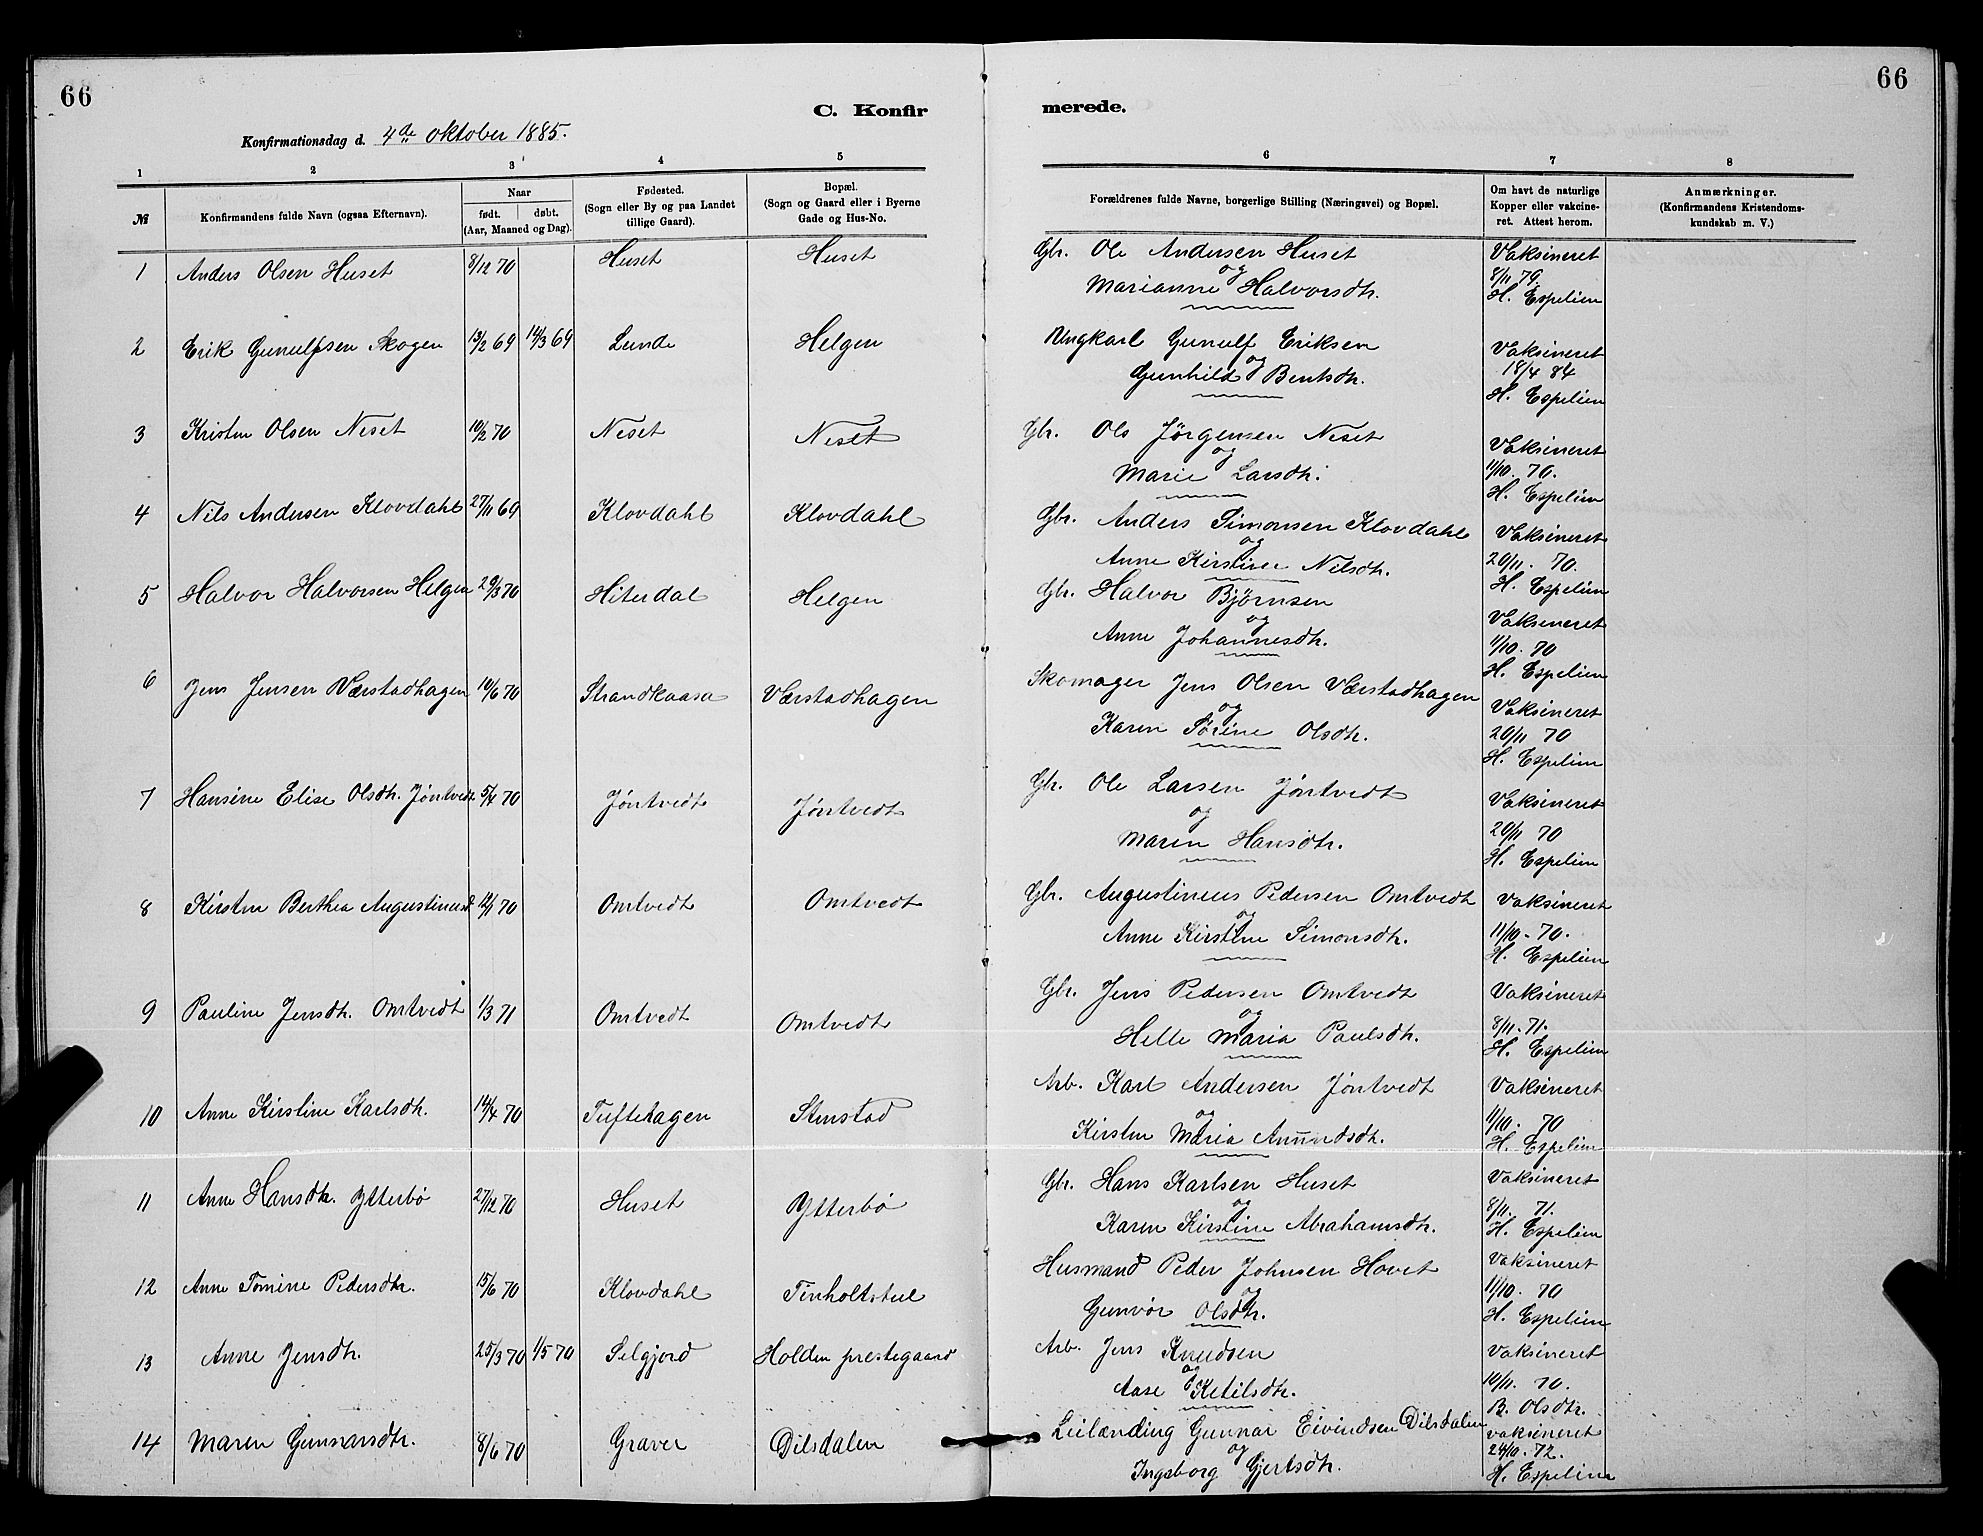 66
66
C. Konfir
merede.
Konfirmationsdag d. 4de Oktober 1885.
1 2 3 4 5 6 7 8
№ Konfirmandens fulde Navn (ogsaa Efternavn). Naar født. døbt. (Aar, Maaned og Dag). Fødested. (Sogn eller By og paa Landet tillige Gaard). Bopæl. (Sogn og Gaard eller i Byerne Gade og Hus-No. Forældrenes fulde Navne, borgerlige Stilling (Næringsvei) og Bopæl. Om havt de naturlige Kopper eller vakcineret. Attest herom. Anmærkninger. (Konfirmandens Kristendomskundskab m. V.)
1 Anders Olsen Huset 8/12 70 Huset Huset Gbr. Ole Andersen Huset Vaksineret
og 8/11 79.
Marianne Halvorsdtr. H. Espelien
2 Erik Gunulfsen Skogen 13/2 69 14/3 69 Lunde Helgen Ungkarl Gunulf Eriksen Vaksineret
og 18/4 84
Gunhild Bentsdtr. H. Espelien
3 Kristen Olsen Neset 10/2 70 Neset Neset Gbr. Ole Jørgensen Neset Vaksineret
og 11/10. 70.
Marie Larsdtr. H. Espelien
4 Nils Andersen Klovdahl 27/11 69 Klovdahl Klovdahl Gbr. Anders Simonsen Klovdahl Vaksineret
og 20/11. 70.
Anne Kirstine Nilsdtr. H. Espelien
5 Halvor Halvorsen Helgen 29/3 70 Hiterdal Helgen Gbr. Halvor Bjørnsen Vaksineret
og 11/10. 70
Anne Johannesdtr. H. Espelien
6 Jens Jensen Værstadhagen 10/6 70 Strandkaasa Værstadhagen Skomager Jens Olsen Værstadhagen Vaksineret
og 20/11 70
Karen Sørine Olsdtr. H. Espelien
7 Hansine Elise Olsdtr. Jøntvedt 5/4 70 Jøntvedt Jøntvedt Gbr. Ole Larsen Jøntvedt Vaksineret
og 20/11 70
Maren Hansdtr. H. Espelien
8 Kirsten Berthea Augustinusd 12/1 70 Omtvedt Omtvedt Gbr. Augustinus Pedersen Omtvedt Vaksineret
og 11/10. 70.
Anne Kirstine Simonsdtr. H. Espelien
9 Pauline Jensdtr. Omtvedt 1/3 71 Omtvedt Omtvedt Gbr. Jens Pedersen Omtvedt Vaksineret
og 8/11. 71.
Helle Maria Paulsdtr. H. Espelien
10 Anne Kirstine Karlsdtr. 14/4 70 Tuftehagen Stenstad Arb. Karl Andersen Jøntvedt Vaksineret
og 11/10. 70
Kirsten Maria Amundsdtr. H. Espelien
11 Anne Hansdtr. Ytterbø 27/12 70 Huset Ytterbø Gbr. Hans Karlsen Huset Vaksineret
og 8/11. 71.
Karen Kirstine Abrahamsdtr. H. Espelien
12 Anne Tomine Pedersdtr. 15/6 70 Klovdahl Tinholtstul Husmand Peder Johnsen Hovet Vaksineret
og 11/10. 70
Gunvor Olsdtr. H. Espelien
13 Anne Jensdtr. 25/3 70 1/5 70 Selgjord Holden prestegaard Arb. Jens Knudsen Vaksineret
og 10/11. 70.
Aase Ketilsdtr. B. Olsdtr.
14 Maren Gunnarsdtr. 8/6 70 Graver Dilsdalen Leilænding Gunnar Eivindsen Dilsdalen Vaksineret
og 24/10. 72.
Ingeborg Gjertsdtr. H. Espelien